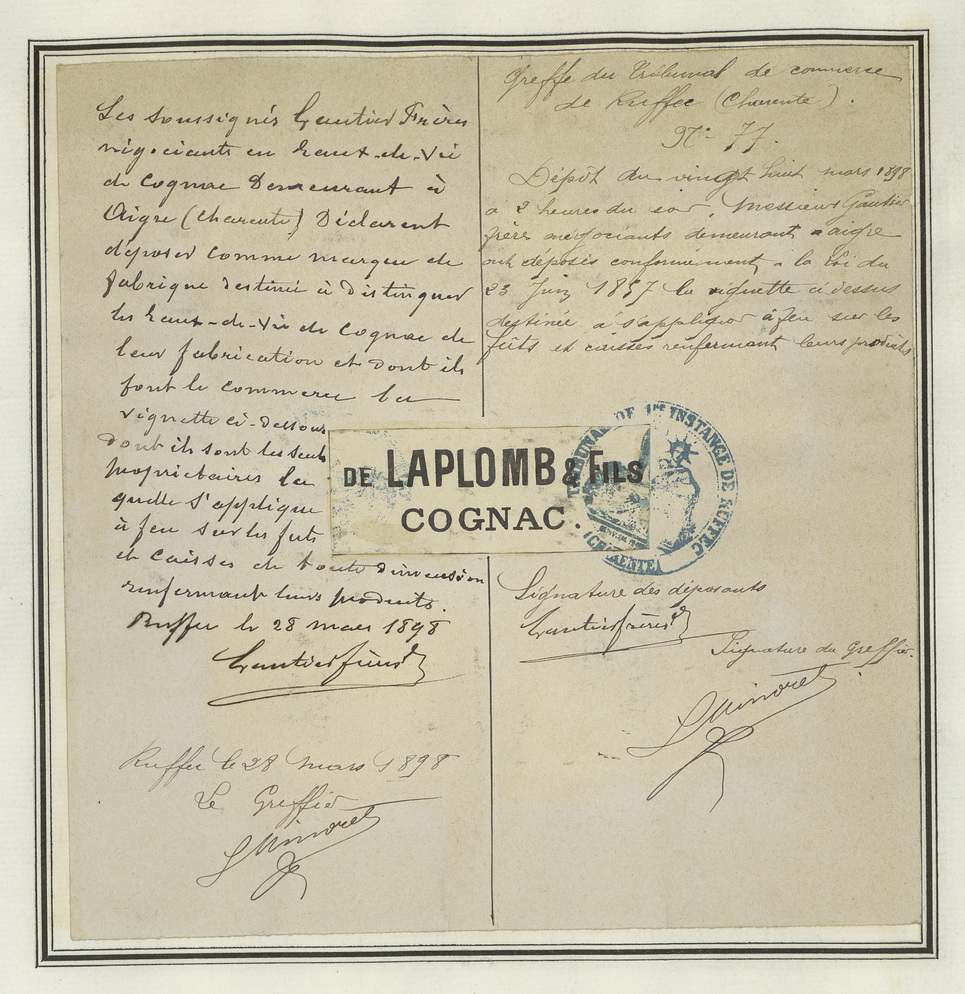 Les soussignés Gautier Frères
négociants en Eaux-de-Vie
de Cognac Demeurant à
Aigre (Charente) Déclarent
déposer comme marque de
fabrique destinée à Distinguer
les Eaux-de-Vie de Cognac de
leur fabrication et dont ils
font le commerce la
vignette ci-dessous
dont ils sont les seuls
propriétaires la
quelle s'applique
à feu sur les futs
et caisses de toute dimension
renfermant leurs produits.
Ruffec le 28 mars 1898
Gautier frères
Ruffec le 28 mars 1898
Le Greffier
DE LAPLOMB & FILS
COGNAC.
Greffe du Tribunal de commerce
de Ruffec (Charente).
N° 77.
Dépôt du vingt huit mars 1898
à 2 heures du soir, Messieurs Gautier
frères négociants demeurant à aigre
ont déposés conformement à la loi du
23 Juin 1857 la vignette ci dessus
destinée à s'appliquer à feu sur les
fûts et caisses renfermant leurs produits
TRIBUNAL DE 1re INSTANCE DE RUFFEC
(CHARENTE)
Signature des déposants
Gautier frères
Signature du Greffier.